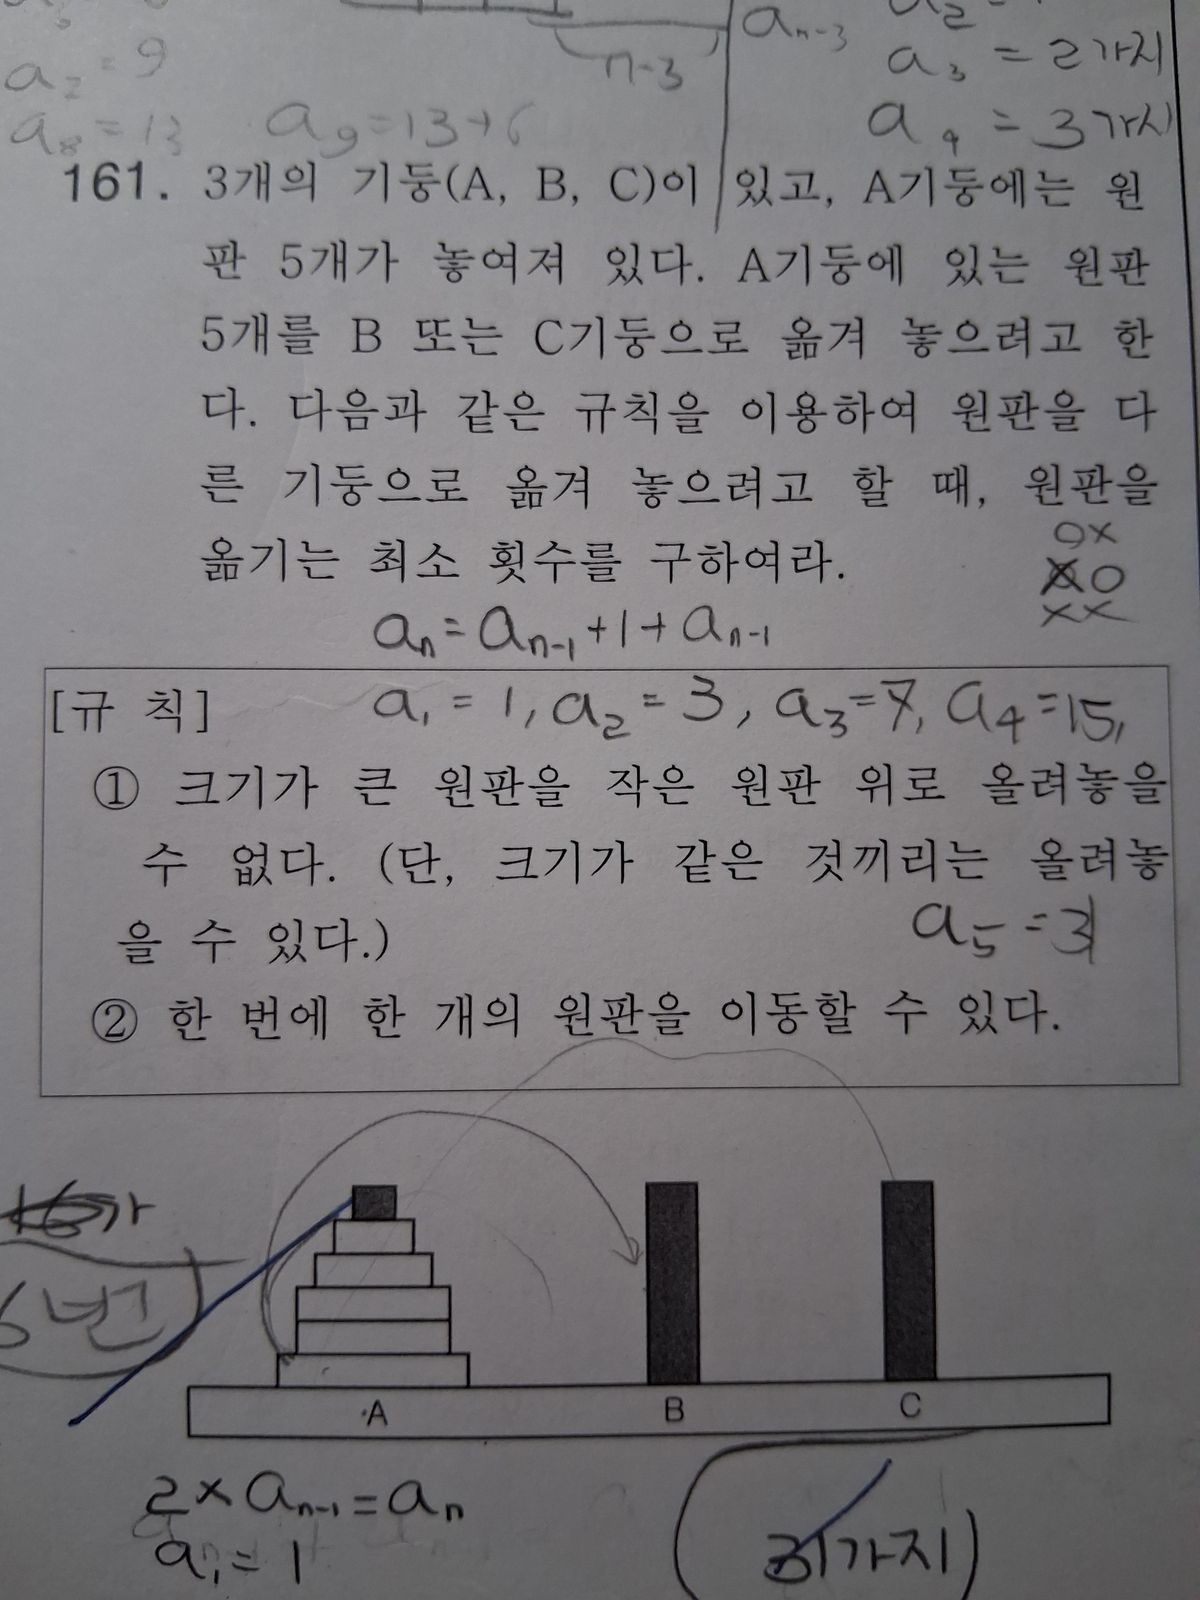 n-3
a n-3
a₃ = 2가지
a₂ = 9
a₈ = 13
a₉ = 13+6
a₄ = 3가지
161. 3개의 기둥(A, B, C)이 있고, A기둥에는 원
판 5개가 놓여져 있다. A기둥에 있는 원판
5개를 B 또는 C기둥으로 옮겨 놓으려고 한
다. 다음과 같은 규칙을 이용하여 원판을 다
른 기둥으로 옮겨 놓으려고 할 때, 원판을
옮기는 최소 횟수를 구하여라.
O×
O
××
aₙ = aₙ₋₁ + 1 + aₙ₋₁
[규 칙]
a₁ = 1, a₂ = 3, a₃ = 7, a₄ = 15,
① 크기가 큰 원판을 작은 원판 위로 올려놓을
수 없다. (단, 크기가 같은 것끼리는 올려놓
을 수 있다.)
a₅ = 31
② 한 번에 한 개의 원판을 이동할 수 있다.
6번
A B C
2 × aₙ₋₁ = aₙ
a₁ = 1
31가지